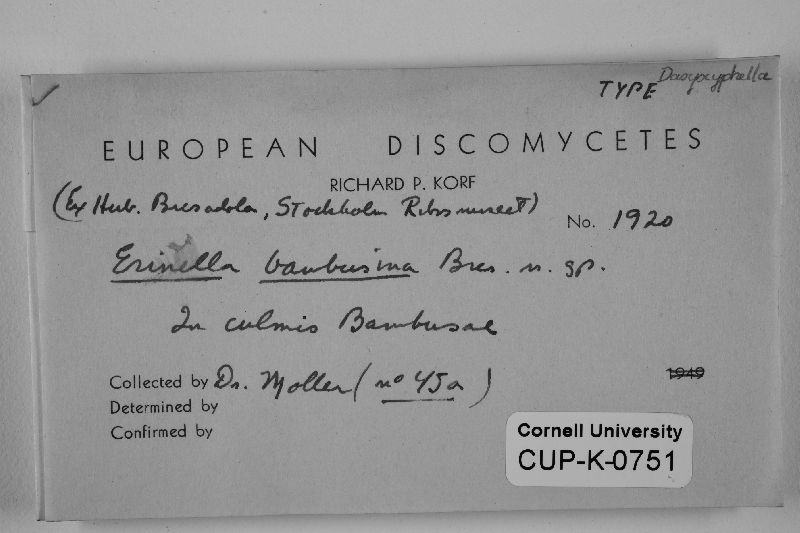 TYPE Dasyscyphella
EUROPEAN DISCOMYCETES
RICHARD P. KORF
(Ex Herb. Bresadola, Stockholm Riksmuseet)
No. 1920
Erinella bambusina Bres. n. sp.
In culmis Bambusae
Collected by Dr. Moller (no 45a)
1949
Determined by
Confirmed by
Cornell University
CUP-K-0751